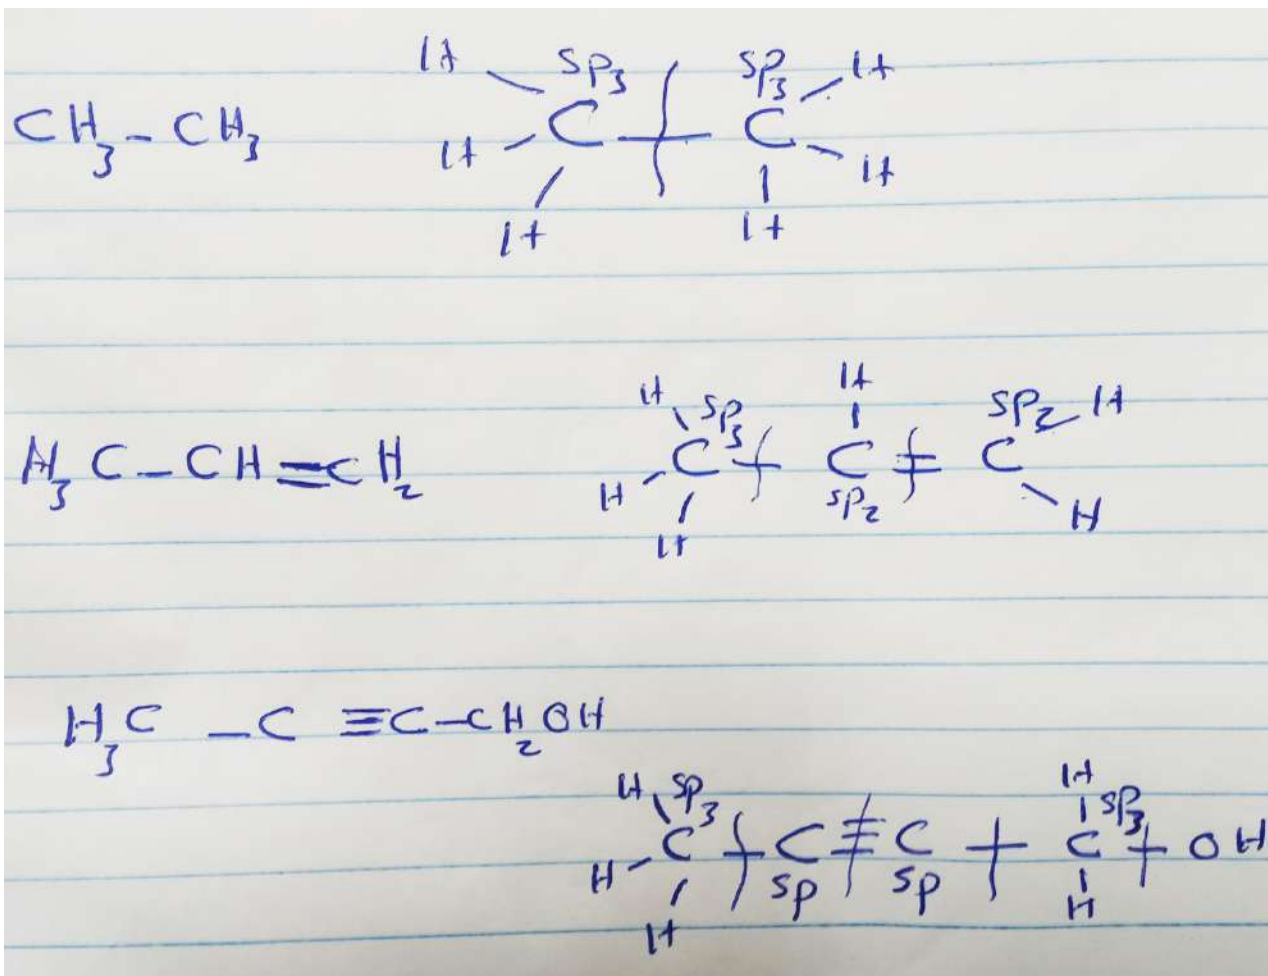 CH₃-CH₃
H sp₃ sp₃ H
H C - C H
H H
H₃C-CH=CH₂
H sp₃ H sp₂ H
H C - C = C
H sp₂ H
H₃C-C≡C-CH₂OH
H sp₃ H sp₃
H C - C ≡ C - C - OH
H sp sp H